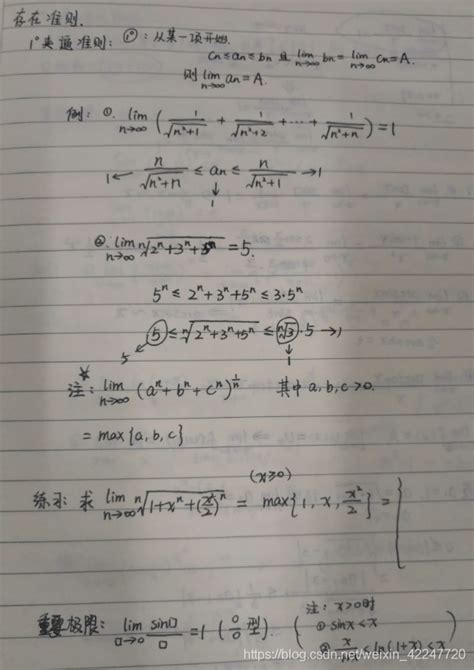 存在准则.
1° 夹逼准则: ①: 从某一项开始.
cn ≤ an ≤ bn 且 lim n→∞ bn = lim n→∞ cn = A.
则 lim n→∞ an = A.
例: ①. lim n→∞ ( 1/√(n²+1) + 1/√(n²+2) + ··· + 1/√(n²+n) ) = 1
1 ← n/√(n²+n) ≤ an ≤ n/√(n²+1) → 1
↓
1
②. lim n→∞ ⁿ√(2ⁿ+3ⁿ+5ⁿ) = 5.
5ⁿ ≤ 2ⁿ+3ⁿ+5ⁿ ≤ 3·5ⁿ
5 ≤ ⁿ√(2ⁿ+3ⁿ+5ⁿ) ≤ ⁿ√3·5 → 1
5 ↓ 1
*
注: lim n→∞ (aⁿ+bⁿ+cⁿ)^(1/n) 其中 a, b, c >0.
= max{a, b, c}
(x≥0)
练习: 求 lim n→∞ ⁿ√(1+xⁿ+(x/2)ⁿ) = max{1, x, x²/2} = {
重要极限: lim □→0 sin□/□ = 1 (0/0 型).
注: x>0时
① sinx < x
② x/ < ln(1+x) < x
https://blog.csdn.net/weixin_42247720